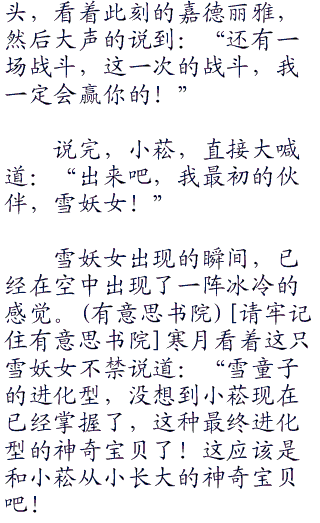 头，看着此刻的嘉德丽雅，
然后大声的说到：“还有一
场战斗，这一次的战斗，我
一定会赢你的！”
说完，小菘，直接大喊
道：“出来吧，我最初的伙
伴，雪妖女！”
雪妖女出现的瞬间，已
经在空中出现了一阵冰冷的
感觉。(有意思书院)[请牢记
住有意思书院]寒月看着这只
雪妖女不禁说道：“雪童子
的进化型，没想到小菘现在
已经掌握了，这种最终进化
型的神奇宝贝了！这应该是
和小菘从小长大的神奇宝贝
吧！